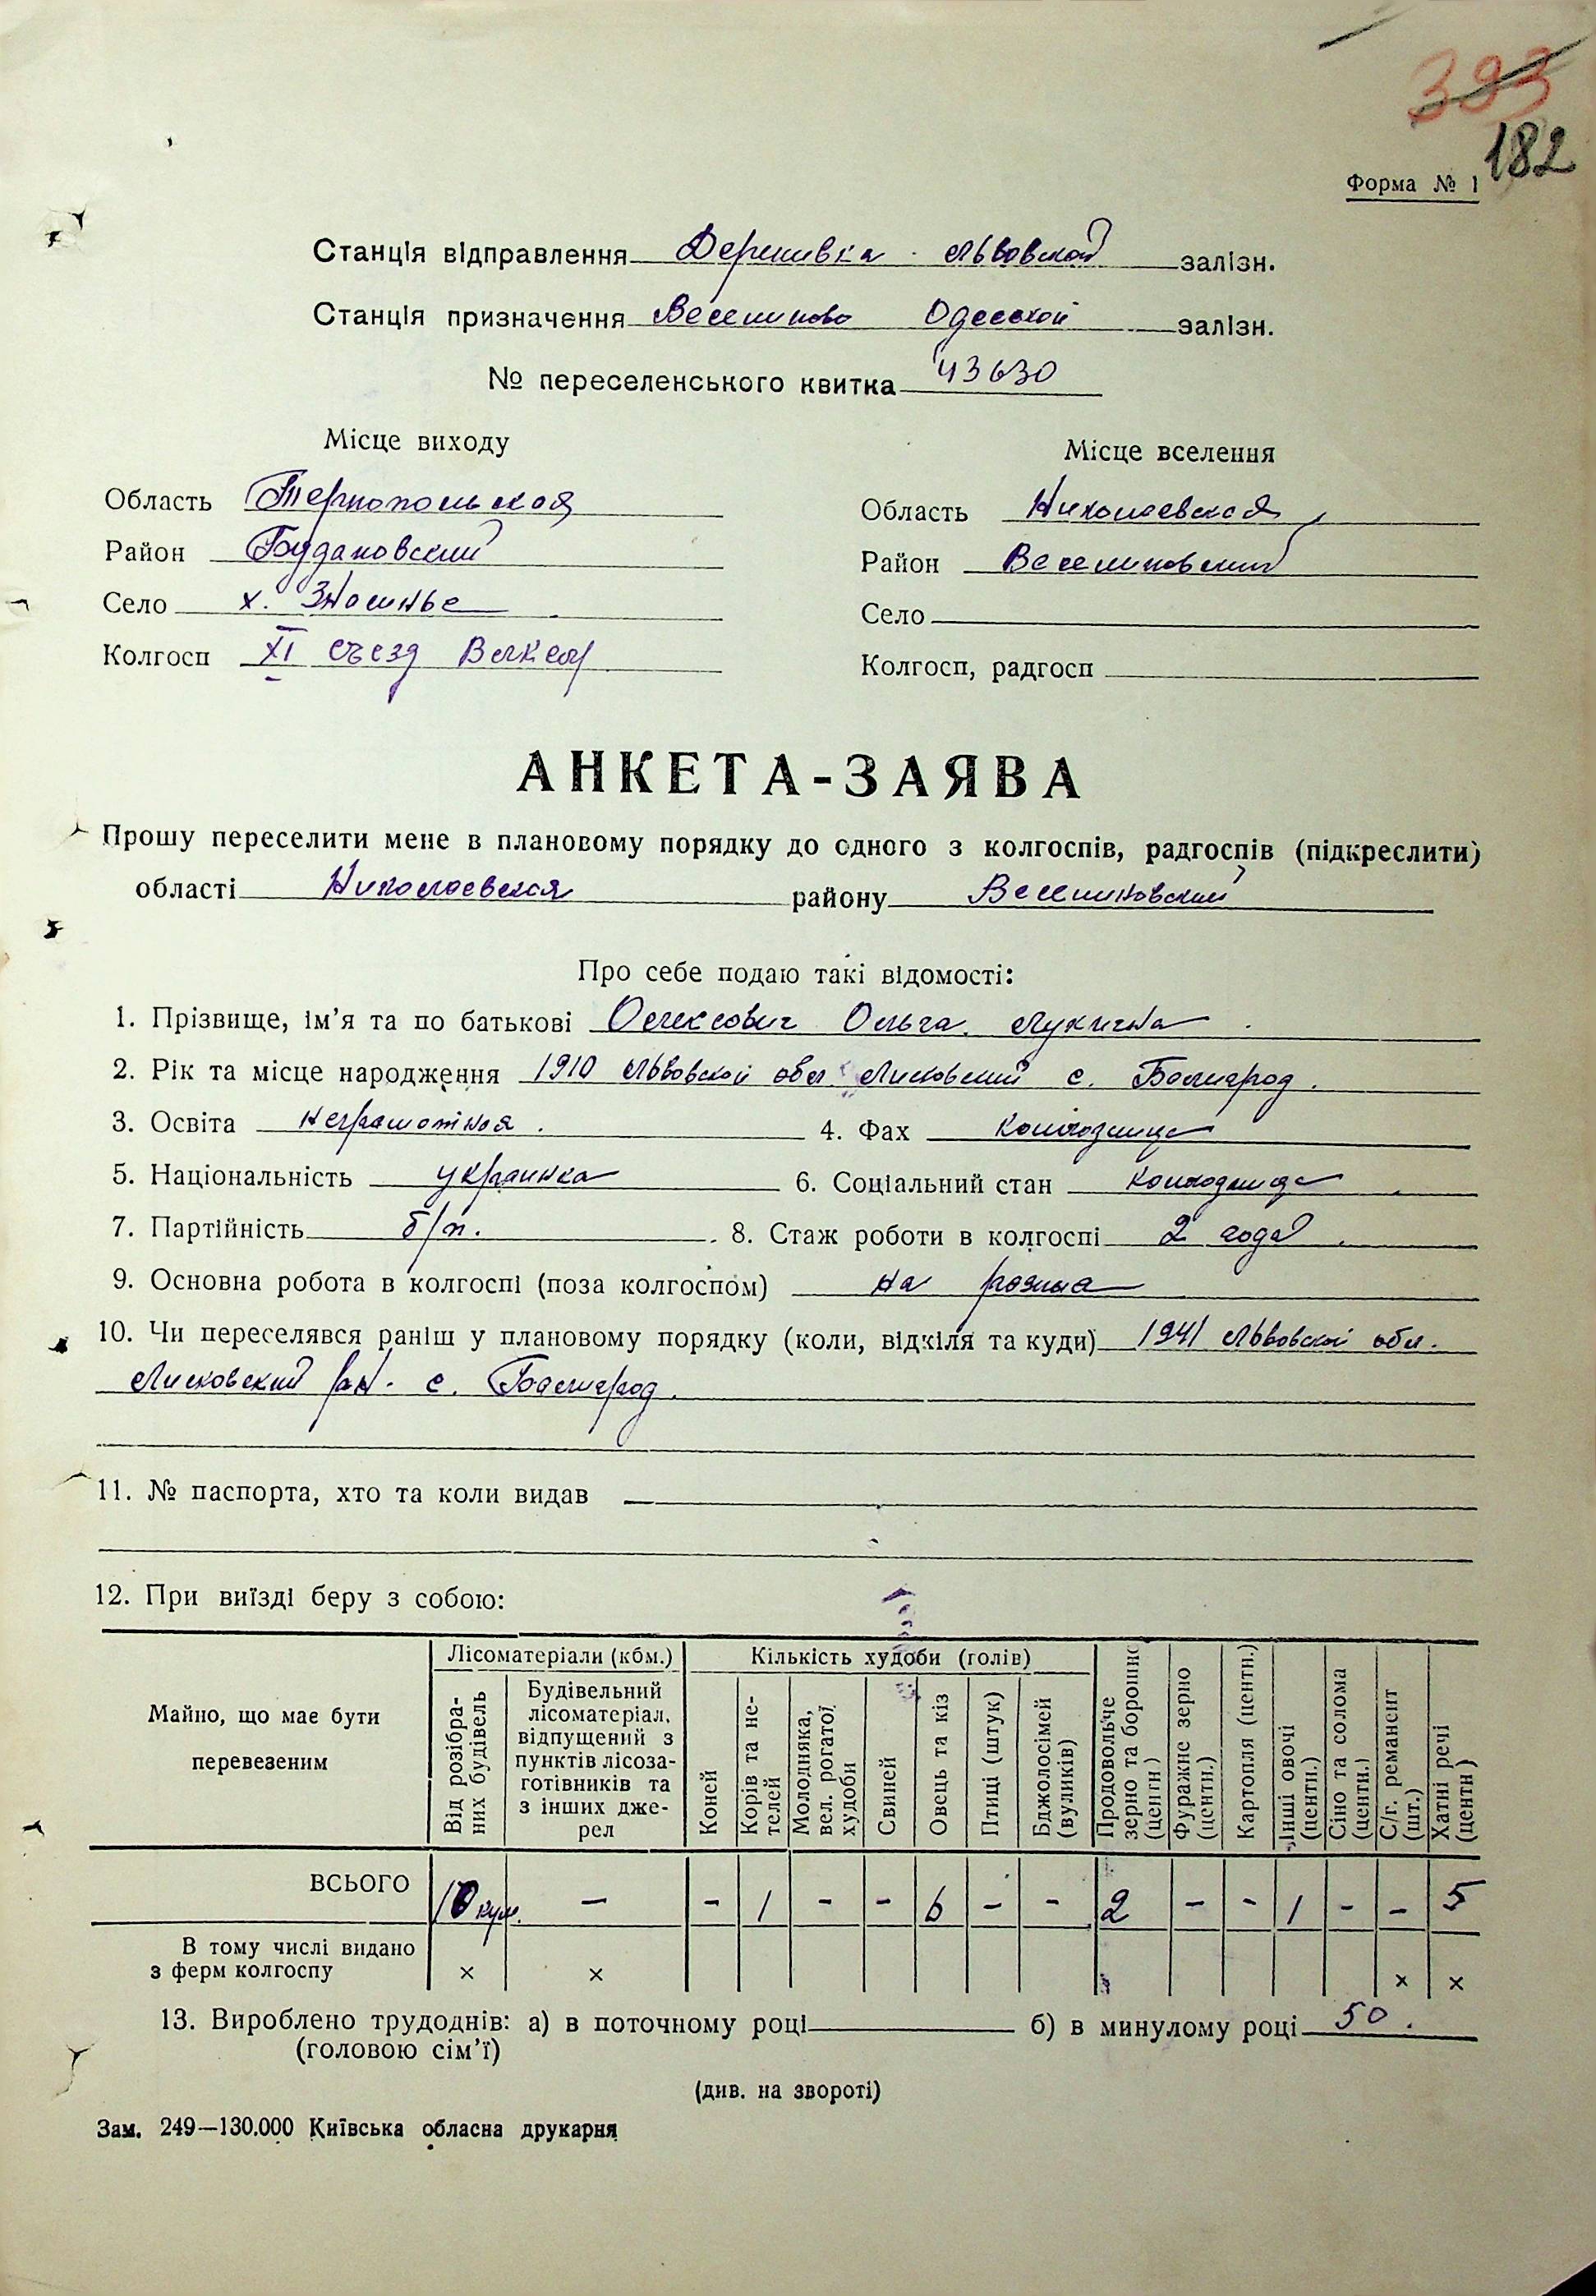 393
182
Форма № 1
Станція відправлення Деренивка Львовской залізн.
Станція призначення Веселиново Одесской залізн.
№ переселенського квитка 43630
Місце виходу
Місце вселення
Область Тернопольская
Область Николаевская
Район Будановский
Район Веселиновский
Село х.
Село
Колгосп XI съезд ВЛКСМ
Колгосп, радгосп
АНКЕТА-ЗАЯВА
Прошу переселити мене в плановому порядку до одного з колгоспів, радгоспів (підкреслити)
області Николаевская району Веселиновский
Про себе подаю такі відомості:
1. Прізвище, ім’я та по батькові Олексович Ольга Лукична
2. Рік та місце народження 1910 Львовской обл Лисковский с. Балигрод.
3. Освіта неграмотная. 4. Фах колхозница
5. Національність украинка 6. Соціальний стан колхозница
7. Партійність б/п. 8. Стаж роботи в колгоспі 2 года
9. Основна робота в колгоспі (поза колгоспом) на разных
10. Чи переселявся раніш у плановому порядку (коли, відкіля та куди) 1941 Львовской обл.
Лисковский рн. с. Балигрод.
11. № паспорта, хто та коли видав —
12. При виїзді беру з собою:
Майно, що має бути перевезеним
Лісоматеріали (кбм.)
Кількість худоби (голів)
Від розібраних будівель
Будівельний лісоматеріал, відпущений з пунктів лісозаготівників та з інших джерел
Коней
Корів та нетелей
Молодняка, вел. рогатої худоби
Свиней
Овець та кіз
Птиці (штук)
Бджолосімей (вуликів)
Продовольче зерно та борошно (центн.)
Фуражне зерно (центн.)
Картопля (центн.)
Інші овочі (центн.)
Сіно та солома (центн.)
С/г. реманент (шт.)
Хатні речі (центн)
ВСЬОГО 10 кум. — - 1 - - 6 - - 2 - - 1 - - 5
В тому числі видано
з ферм колгоспу × × × ×
13. Вироблено трудоднів: а) в поточному році б) в минулому році 50.
(головою сім’ї)
(див. на звороті)
Зам. 249—130.000 Київська обласна друкарня